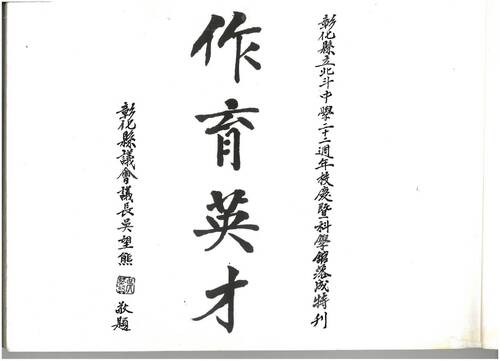 彰化縣立北斗中學二十二週年校慶暨科學館落成特刊
作育英才
彰化縣議會議長吳望熊
敬題